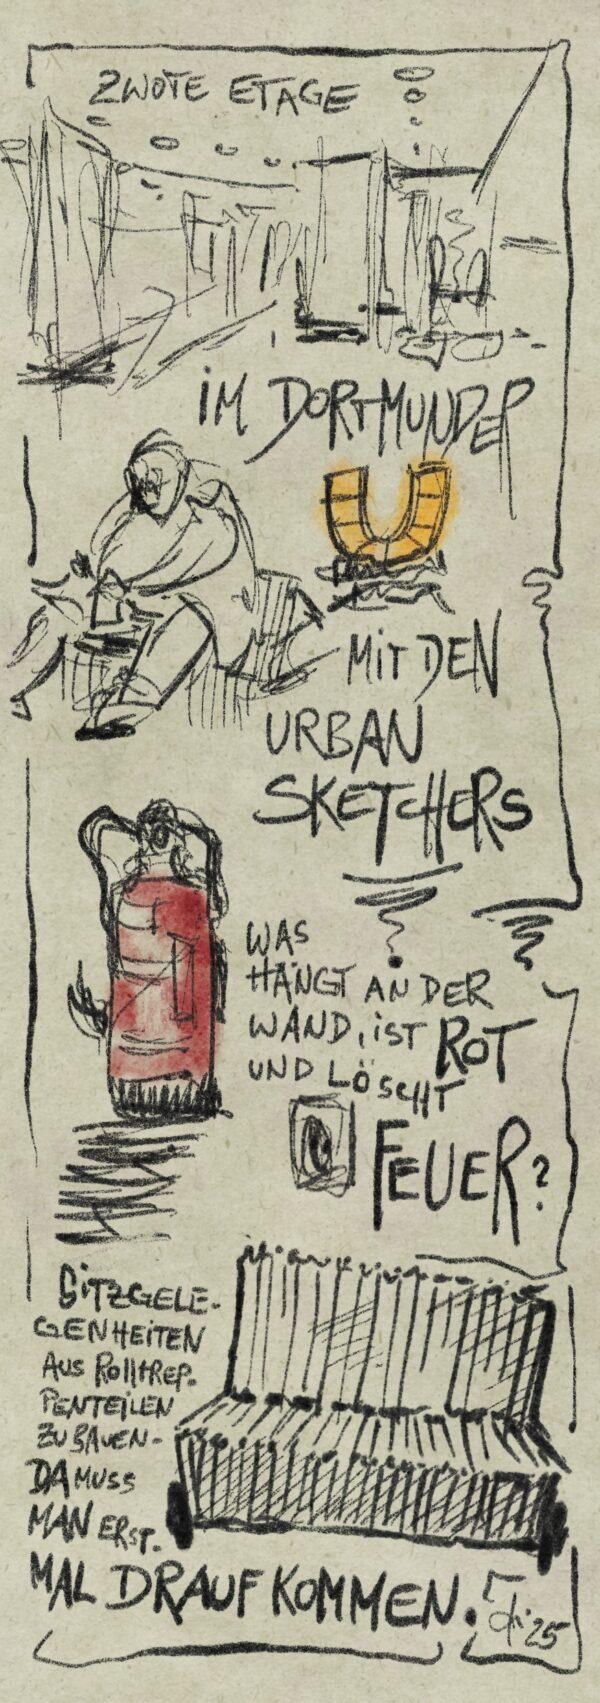 ZWOTE ETAGE
IM DORTMUNDER
U
MIT DEN
URBAN
SKETCHERS
WAS
HÄNGT AN DER
WAND, IST ROT
UND LÖSCHT
FEUER?
SITZGELE-
GENHEITEN
AUS ROLLTREP-
PENTEILEN
ZU BAUEN-
DA MUSS
MAN ERST-
MAL DRAUF KOMMEN.
25